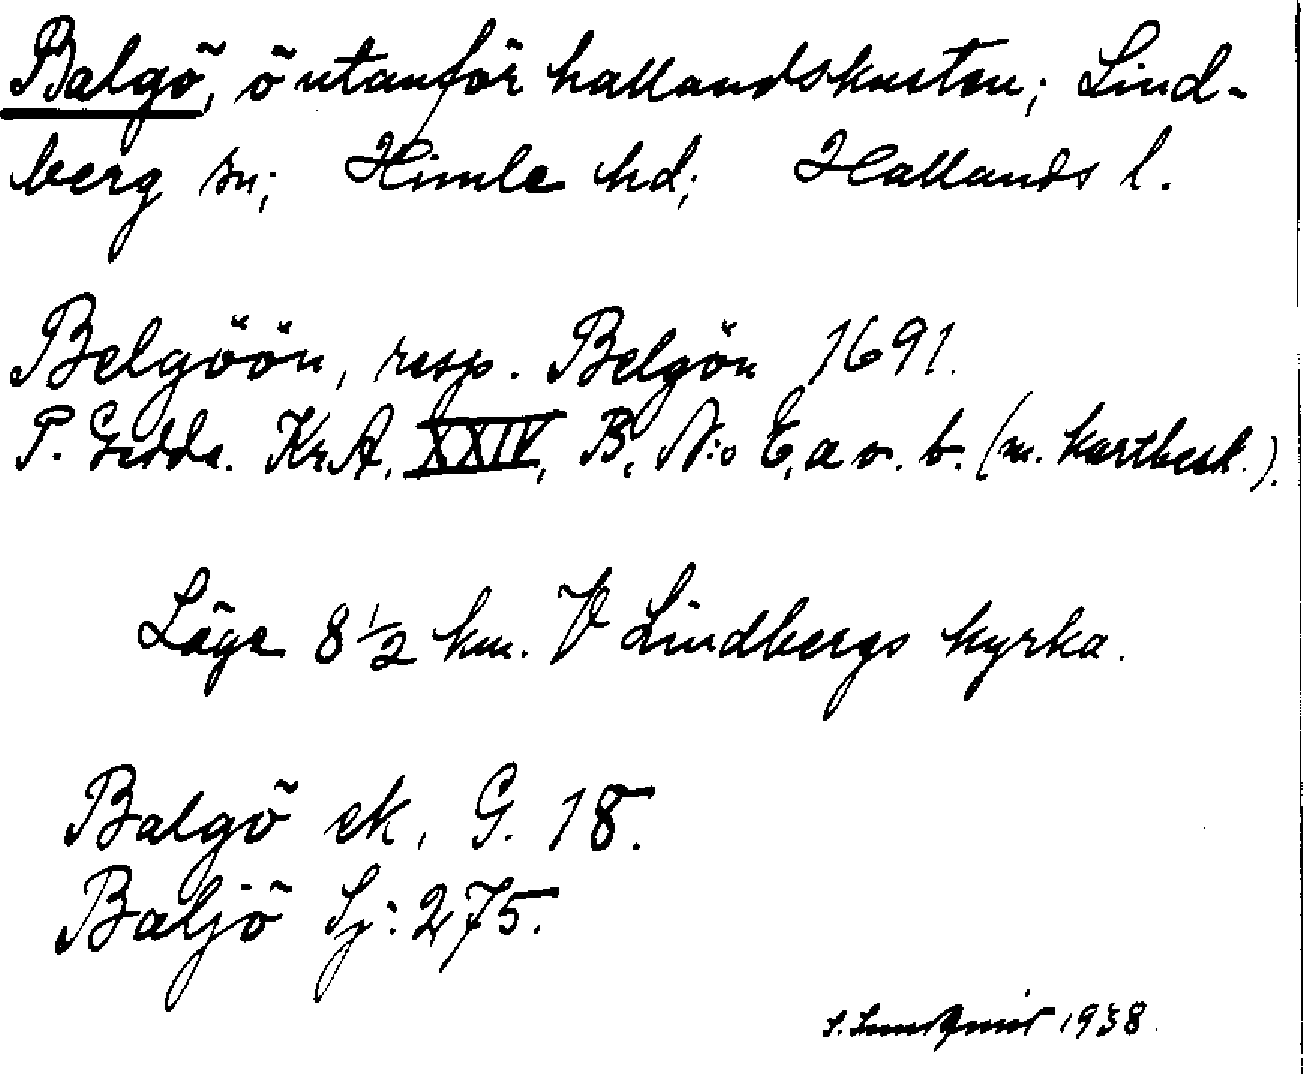 Balgö, ö utanför hallandskusten; Lind-
berg sn; Himle hd; Hallands l.
Belgöön, resp. Belgön 1691.
P. Gedda. Kr.A. XXIV, B, N:o 6, a o. b. (m. kartbeskr.).
Läge 8 1/2 km. V Lindbergs kyrka.
Balgö ek, G. 18.
Baljö Sj: 275.
S. Lundqvist 1938.